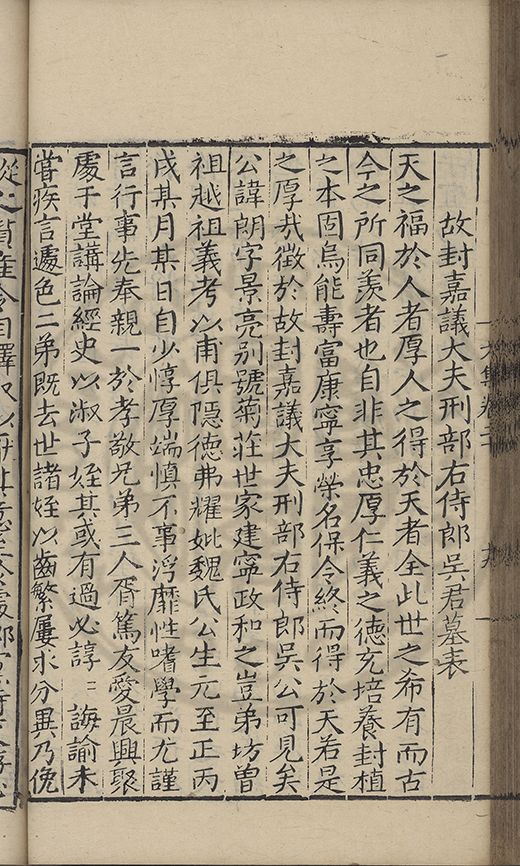 故封嘉議大夫刑部右侍郎吳君墓表
天之福於人者厚人之得於天者全此世之希有而古
今之所同羡者也自非其忠厚仁義之德充培養封植
之本固烏能壽富康寧享榮名保令終而得於天若是
之厚哉徵於故封嘉議大夫刑部右侍郎吳公可見矣
公諱朗字景亮别號菊莊世家建寧政和之豈弟坊曾
祖越祖義考以甫俱隱德弗耀妣魏氏公生元至正丙
戌其月某日自少惇厚端慎不事浮靡性嗜學而尤謹
言行事先奉親一於孝敬兄弟三人胥篤友愛晨興聚
處于堂講論經史以淑子姪其或有過必諄〻誨諭未
嘗疾言遽色二弟既去世諸姪以齒繁屢求分異乃俛
從之